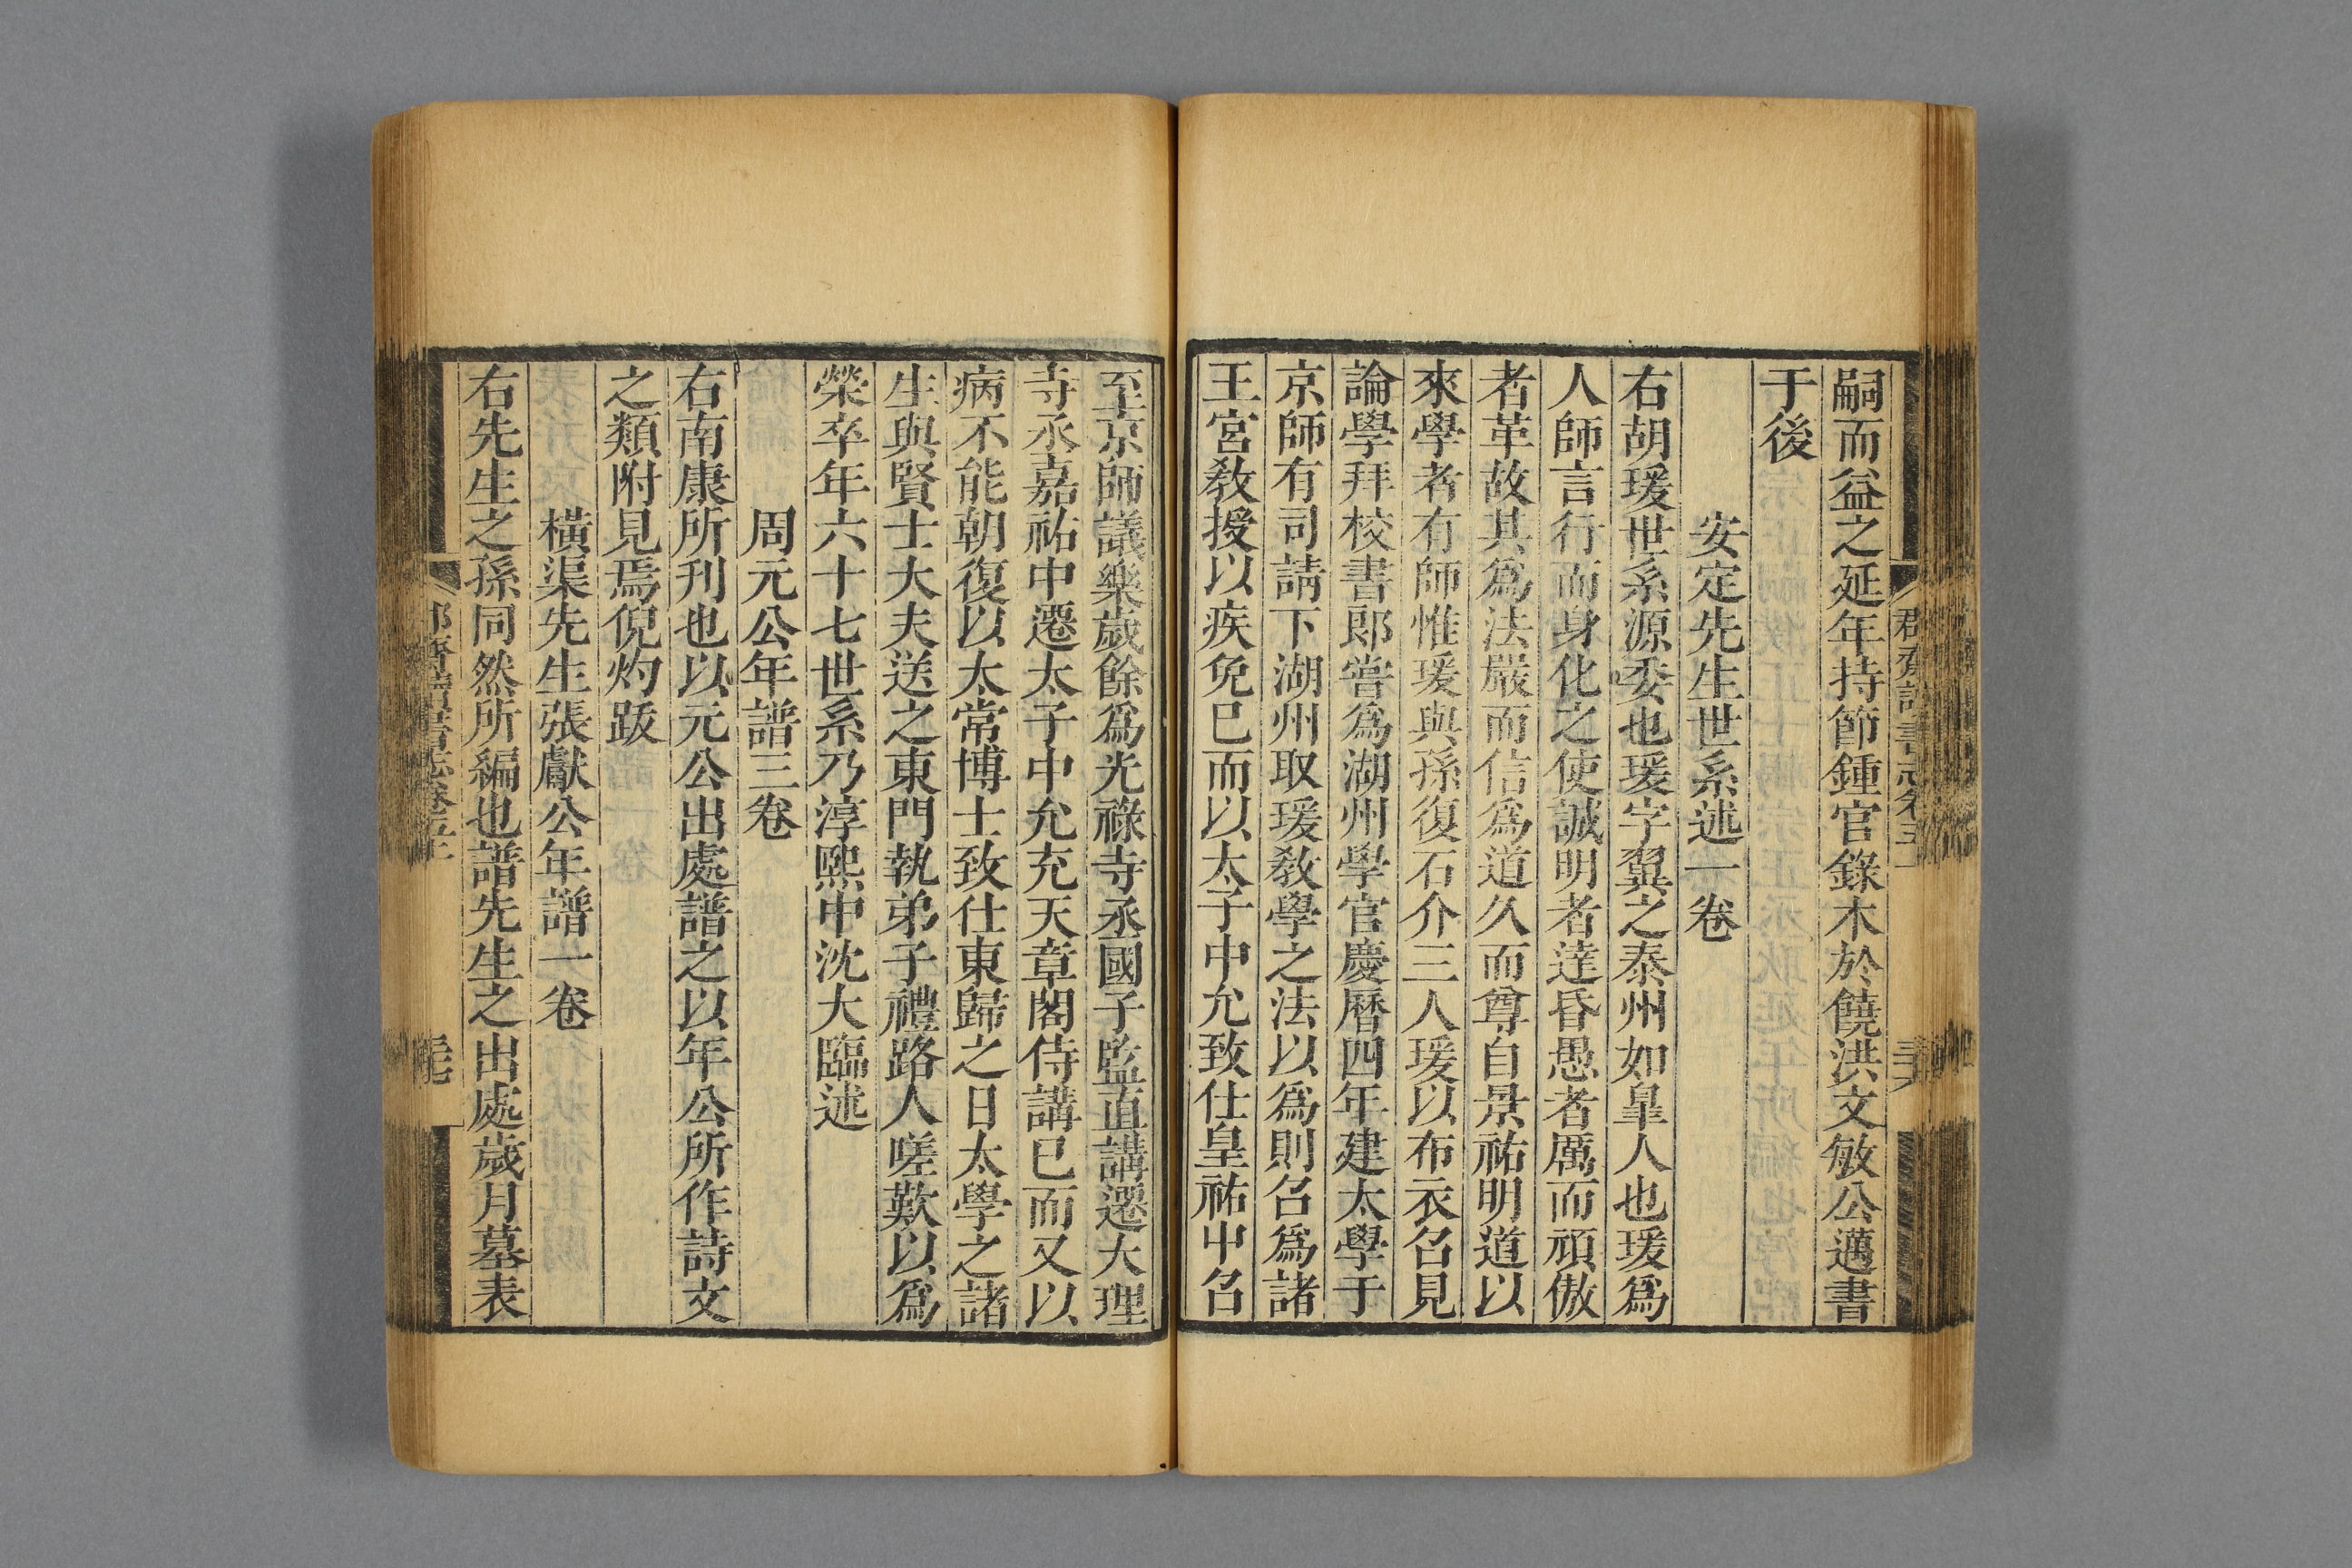 嗣而益之延年持節鍾官錄木於饒洪文敏公邁書
于後
安定先生世系述一卷
右胡瑗世系源委也瑗字翼之泰州如皐人也瑗爲
人師言行而身化之使誠明者達昏愚者厲而頑傲
者革故其爲法嚴而信爲道久而尊自景祐明道以
來學者有師惟瑗與孫復石介三人瑗以布衣召見
論學拜校書郎嘗爲湖州學官慶曆四年建太學于
京師有司請下湖州取瑗教學之法以爲則召爲諸
王宮教授以疾免已而以太子中允致仕皇祐中召
至京師議樂歲餘爲光祿寺丞國子監直講遷大理
寺丞嘉祐中遷太子中允充天章閣侍講已而又以
病不能朝復以太常博士致仕東歸之日太學之諸
生與賢士大夫送之東門執弟子禮路人嗟歎以爲
榮卒年六十七世系乃淳熙中沈大臨述
周元公年譜三卷
右南康所刊也以元公出處譜之以年公所作詩文
之類附見焉倪灼跋
橫渠先生張獻公年譜一卷
右先生之孫同然所編也譜先生之出處歲月墓表